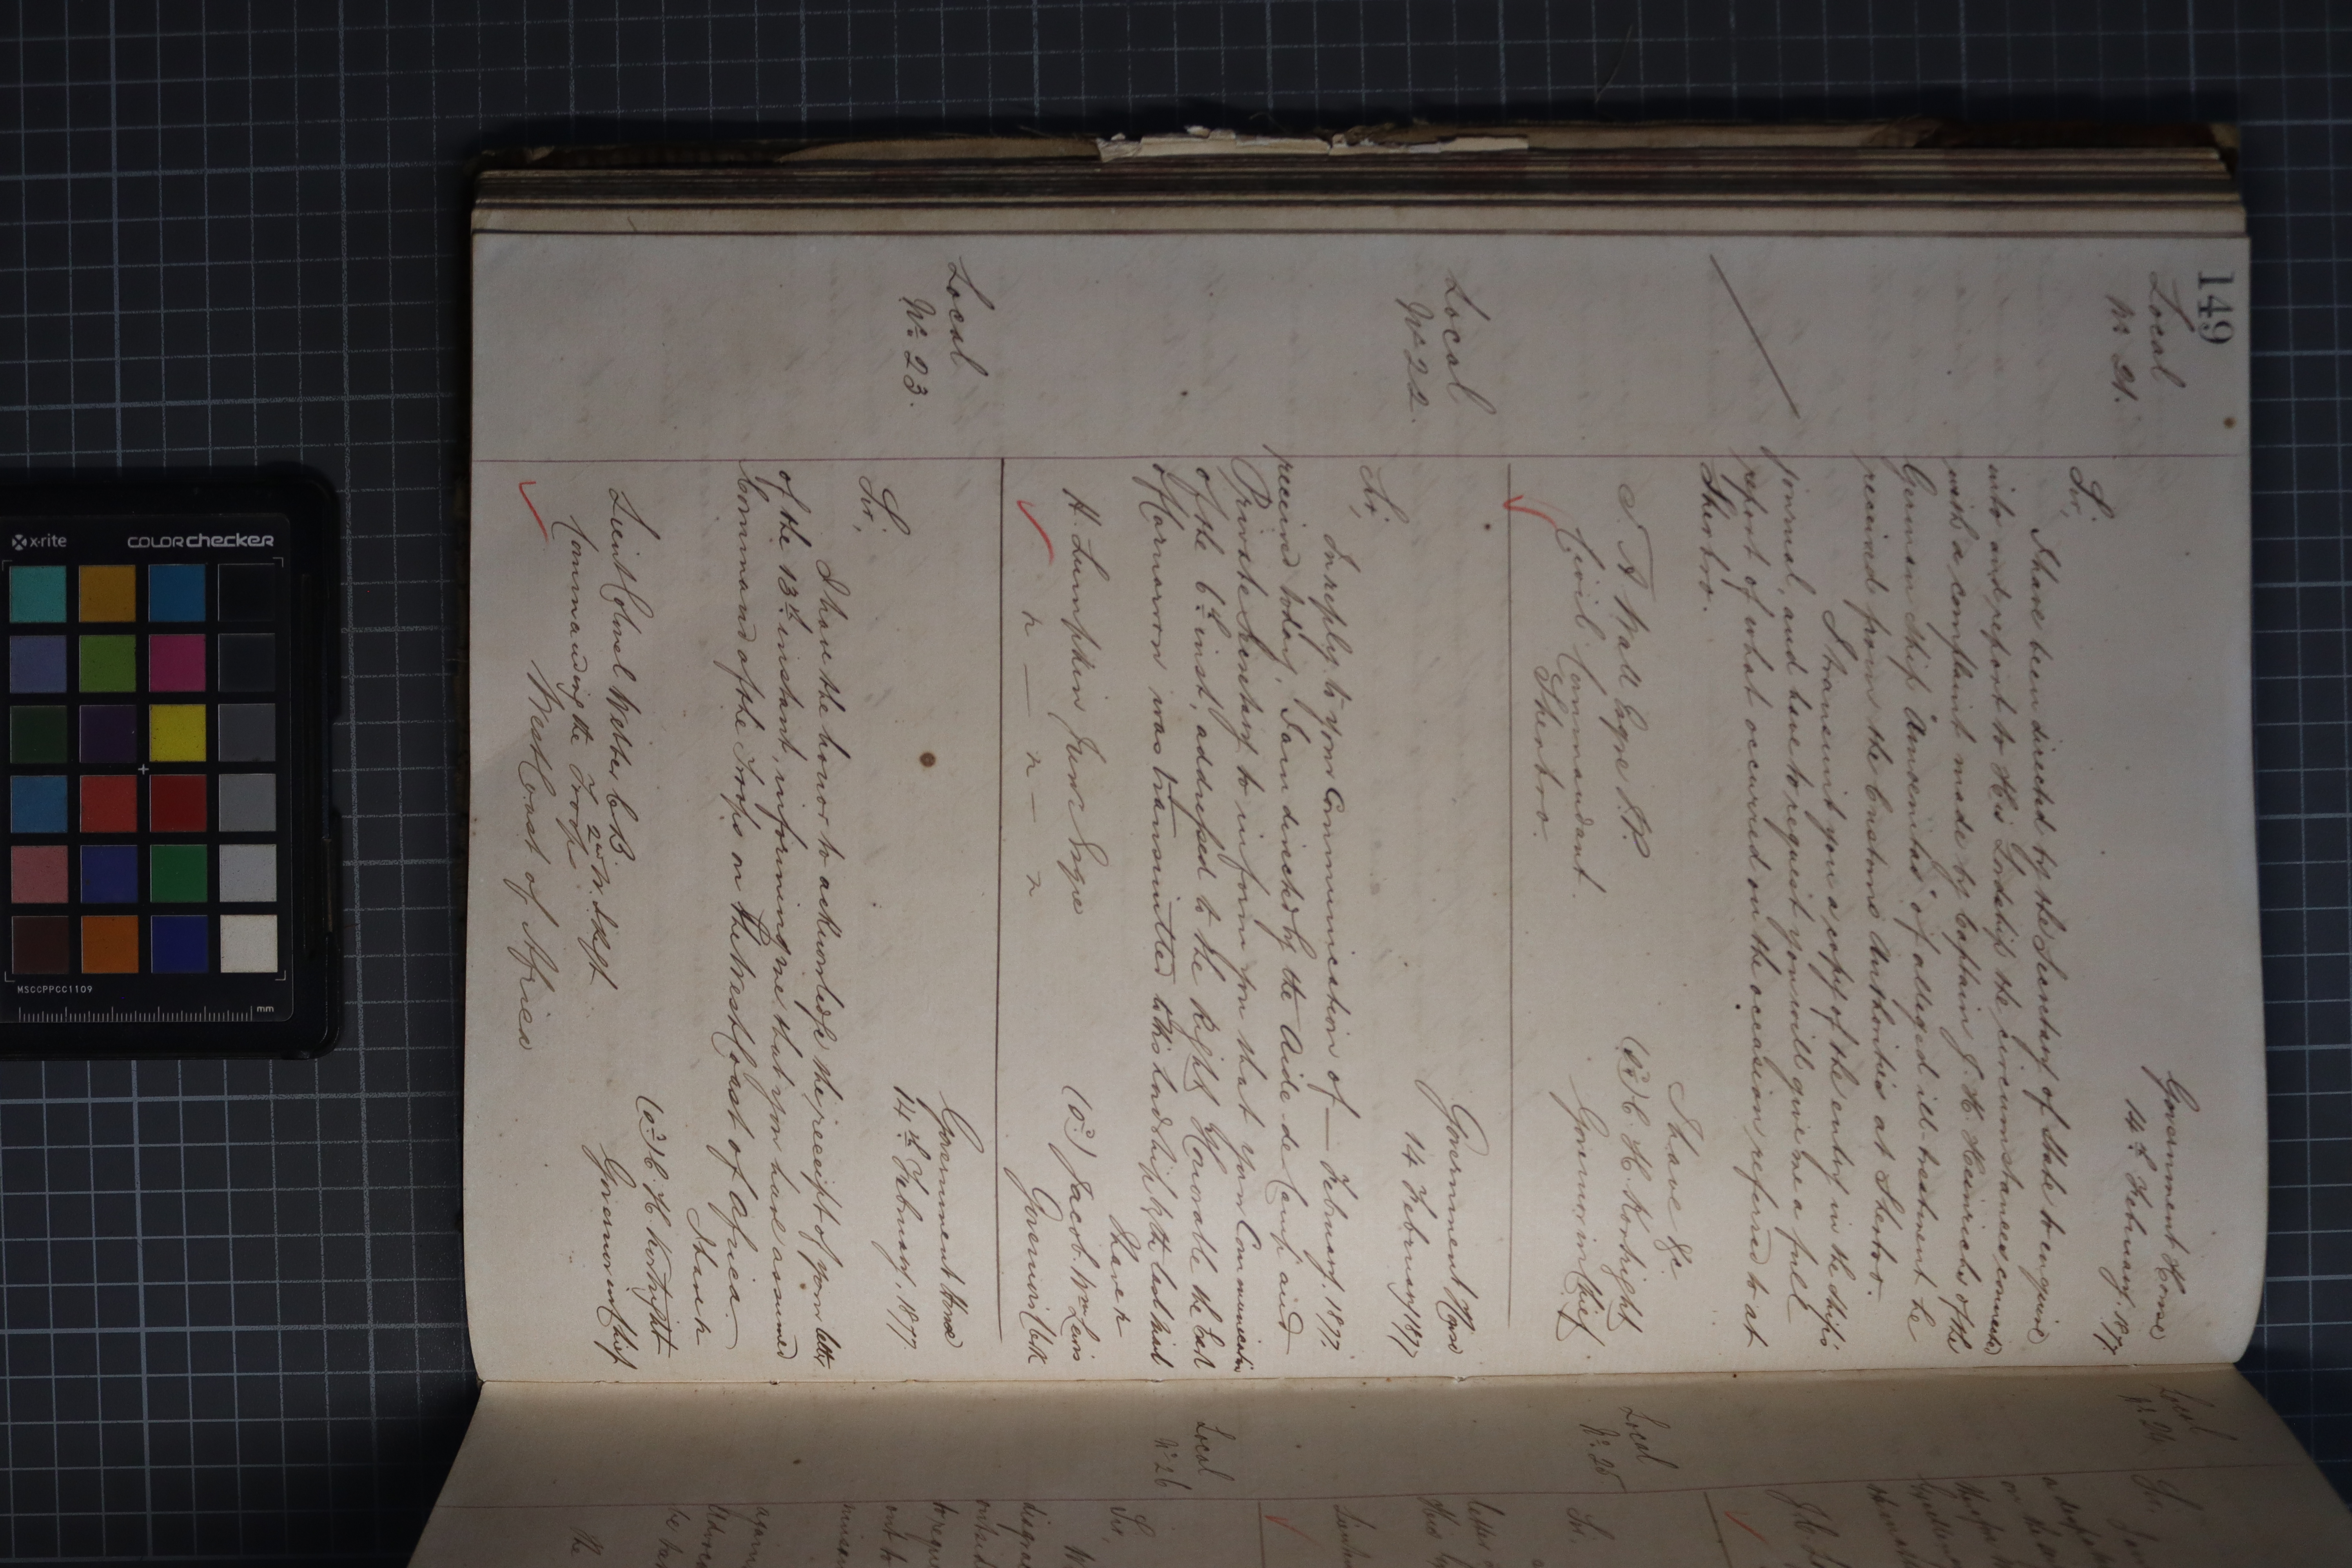 149
Local
No. 21.
Government House
14th February, 1877.
Sir,
I have been directed by the Secretary of State to enquire
into and report to His Lordship the circumstances connected
with a complaint made by Captain J. H. Heinrichs of the
German Ship of alleged ill-treatment he
received from the Customs Authorities at Sherbro.
I transmit you a copy of the entry in the Ship's
journal, and have to request you will give me a full
report of what occurred on the occasion referred to at
Sherbro.
I have &c
(sd) C. H. Kortright
Governor in Chief.
J. A. Wall Esqre J.P.
Civil Commandant.
Sherbro.
Local
No. 22.
Government House
14 February 1877
Sir,
In reply to your Communication of — February, 1877,
received today, I am directed by the Aide de Camp and
Private Secretary to inform you that your Communication
of the 6th inst, addressed to the Right Honorable the Earl
of Carnarvon was transmitted to his Lordship by the last mail
I have &c
(sd) Jacob. Wm Lewis
Governor's Clerk
H. Lumpkin Junr Esqre
Local
No. 23.
Government House
14th February, 1877.
Sir,
I have the honor to acknowledge the receipt of your letter
of the 13th instant, informing me that you have assumed
Command of the Troops on the West Coast of Africa.
I have &c
(sd) C. H. Kortright
Governor in Chief
Lieut Colonel Webber C.B.
2nd W. I. Regt
Commanding the Troops
West Coast of Africa
Local
No. 24
Sir,
Local
No. 25
Sir,
Local
No. 26
Sir,
x-rite
colorchecker
MSCCPPCC1109
mm